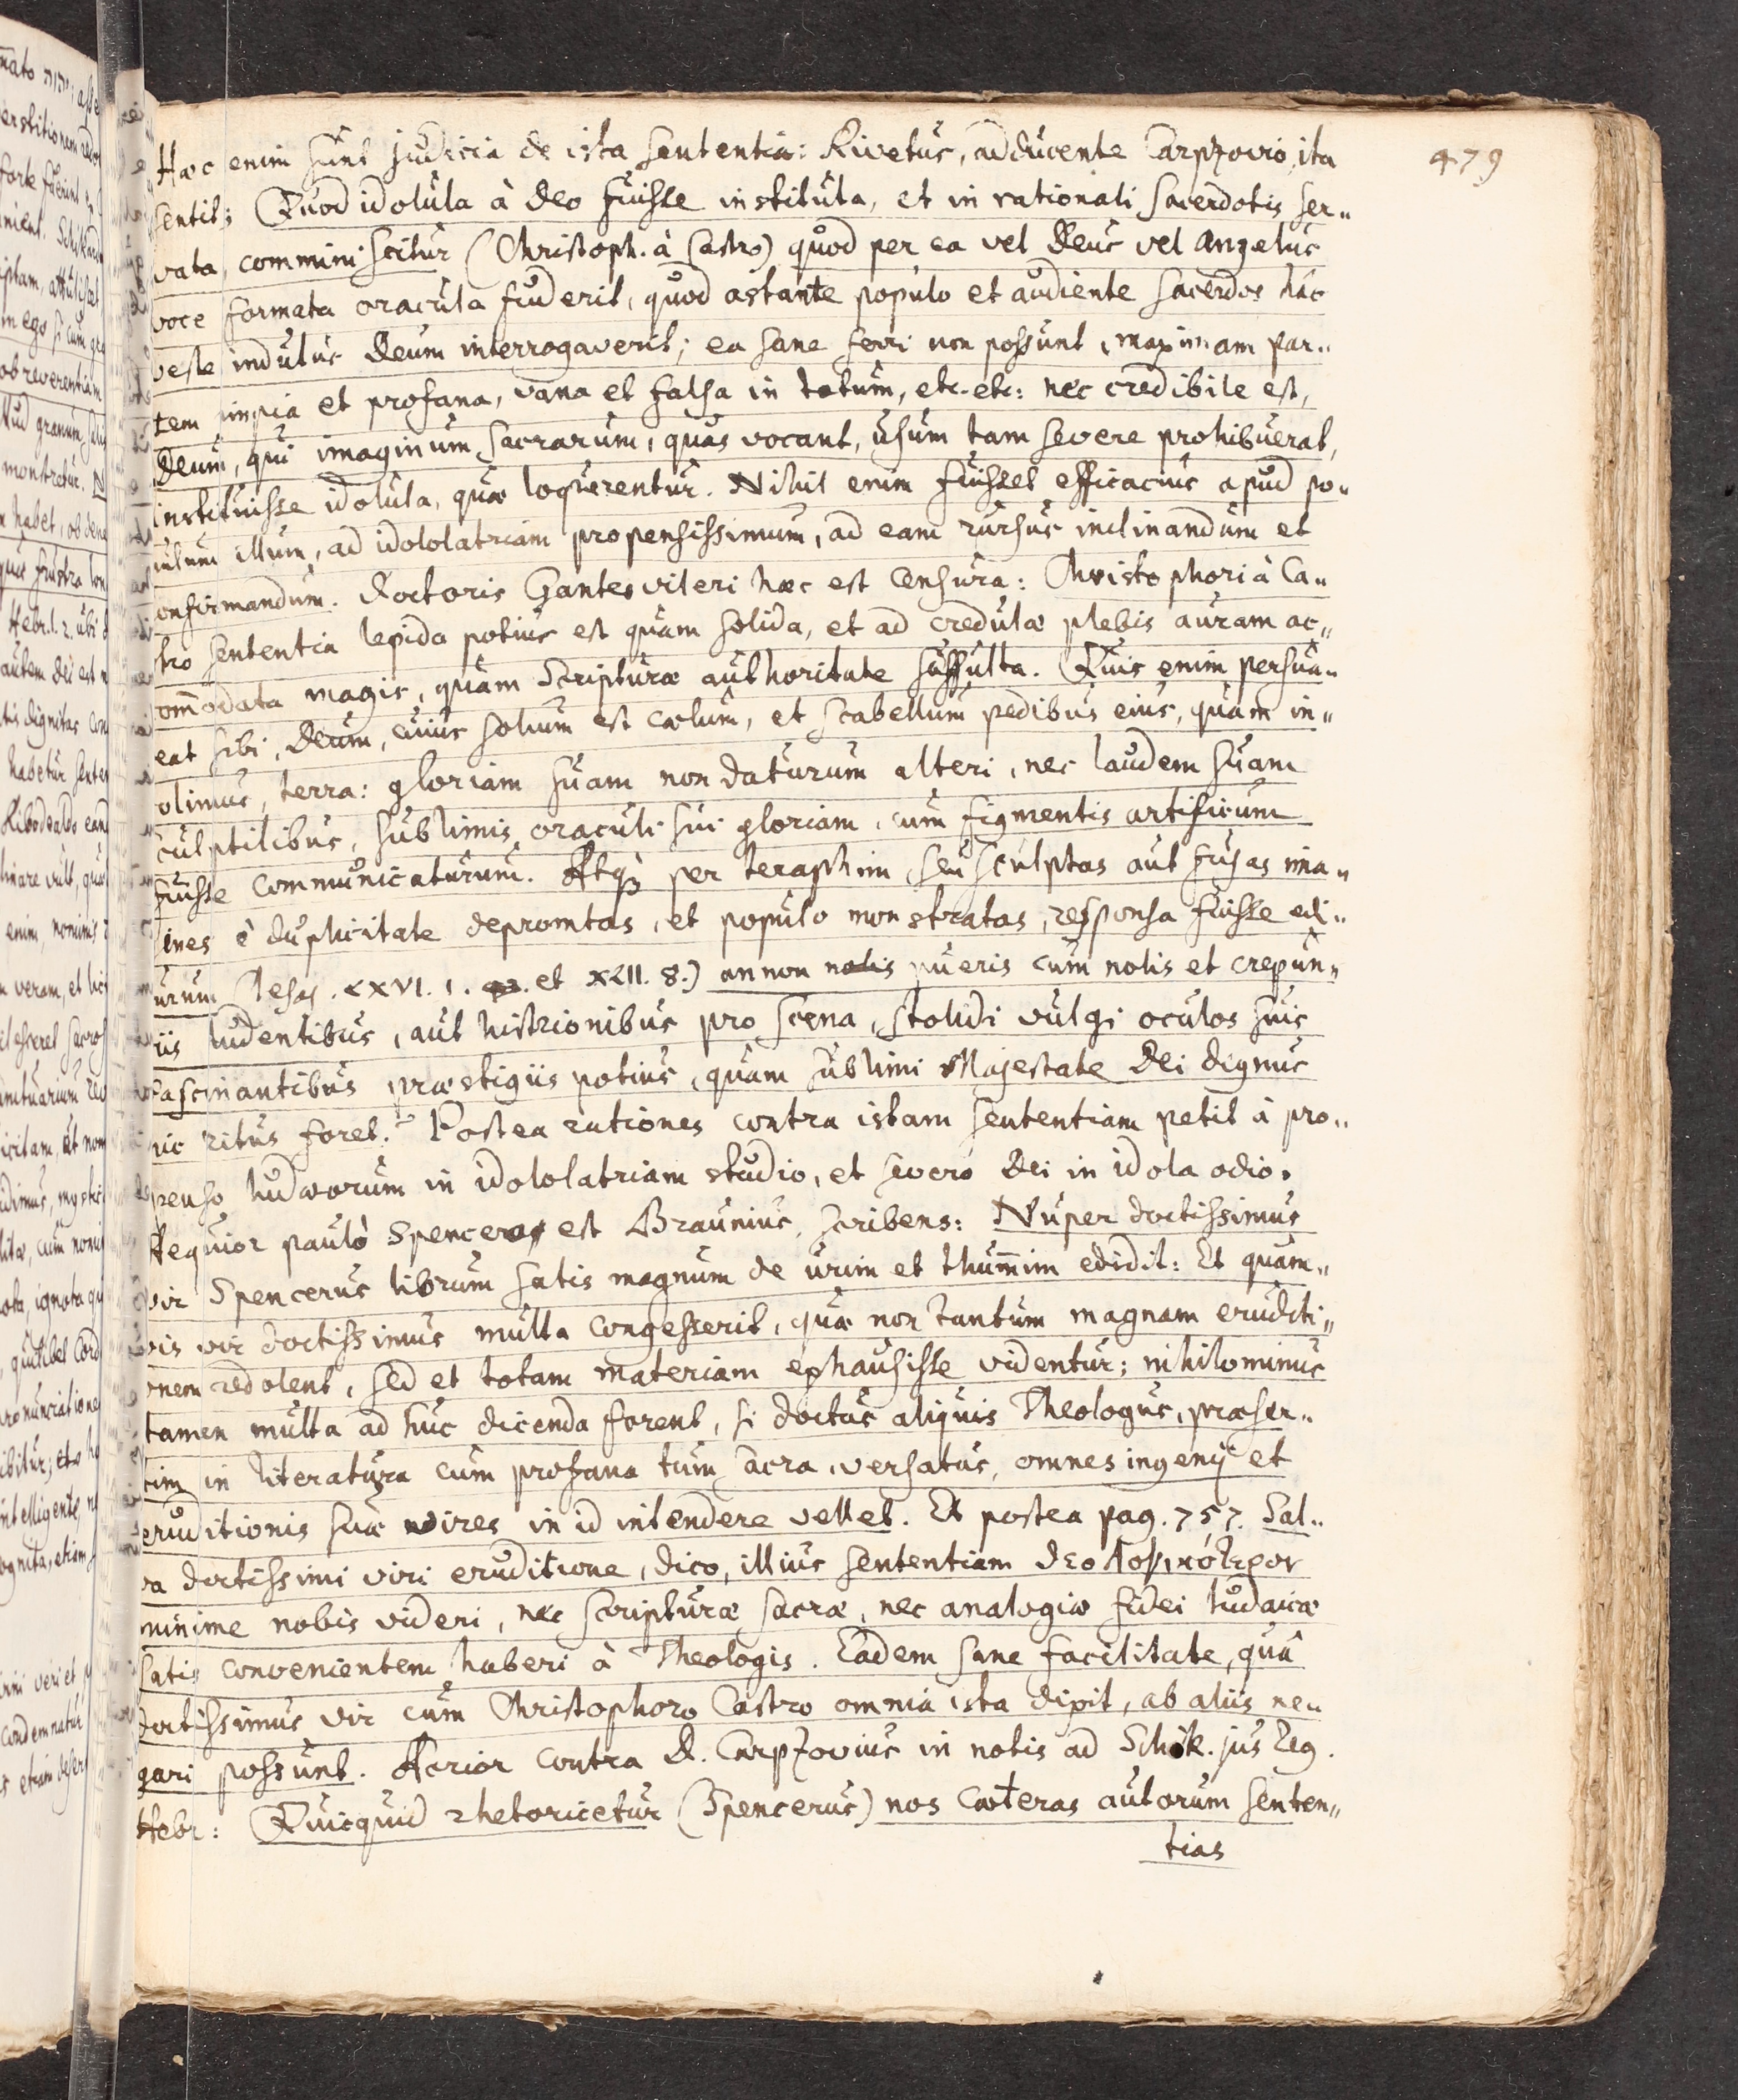 479
Hæc enim sunt judicia de ista sententia: Rivetus, adducente Carpzovio, ita
sentit: Quod idolula à Deo fuisse instituta, et in rationali Sacerdotis ser„
vata, comminiscitur (Christoph. à Castro) quod per ea vel Deus vel Angelus
voce formata oracula fuderit, quod astante populo et audiente sacerdos hâc
veste indutus Deum interrogaverit; ea sane ferri non possunt, maximam par„
tem impia et profana, vana et falsa in totum, etc. etc: nec credibile est,
Deum, qui imaginum sacrarum, quas vocant, usum tam severe prohibuerat,
instituisse idolula, quæ loquerentur. Nihil enim fuisset efficacius apud po„
pulum illum, ad idololatriam propensissimum, ad eam rursus inclinandum et
onfirmandum. Doctoris Gantesvileri hæc est censura: Christophori à Ca„
stro sententia lepida potius est quam solida, et ad credulæ plebis auram ac„
om̄odata magis, quam Scripturæ authoritate suffulta. Quis enim persua„
eat sibi, Deum, cuius solium est cælum, et scabellum pedibus eius, quam in„
olimus, terra: gloriam suam non daturum alteri, nec laudem suam
culptilibus, sublimis oraculi sui gloriam, cum figmentis artificum
fuisse communicaturum. Atq₃ per teraphim, seu sculptas aut fusas ima„
ines è duplicitate depromtas, et populo monstratas, responsa fuisse edi„
urum Jesaj. LXVI. 1. et XLII. 8.) annon natis pueris cum nolis et crepun„
iis ludentibus, aut histrionibus pro scena, stolidi vulgi oculos suis
fascinantibus præstigiis potius, quam sublimi Majestate Dei dignus
hic ritus foret? Postea rationes contra istam sententiam petit à pro„
penso Iudæorum in idololatriam studio, et severo Dei in idola odio.
Aequior paulò Spencero est Braunius, scribens: Nuper doctissimus
vir Spencerus librum satis magnum de urim et thum̄im edidit: Et quam„
vis vir doctissimus multa congesserit, quæ non tantum magnam eruditi„
onem redolent, sed et totam materiam exhausisse videntur; nihilominus
tamen multa ad huc dicenda forent, si doctus aliquis Theologus, præser„
tim in literatura cum profana tum sacra, versatus, omnes ingenij et
eruditionis suæ vires in id intendere vellet. Et postea pag. 757. Sal„
va doctissimi viri eruditione, dico, illius sententiam ϑεολογικότερον
minime nobis videri, nec scripturæ sacræ, nec analogiæ fidei Iudaicæ
satis convenientem haberi à Theologis. Eâdem sane facilitate, quâ
doctissimus vir cum Christophoro Castro omnia ista dixit, ab aliis ne„
gari possunt. Acrior contra D. Carpzovius in notis ad Schik. jus Reg.
Hebr: Quicquid rhetoricetur (Spencerus) nos cæteras autorum senten„
tias